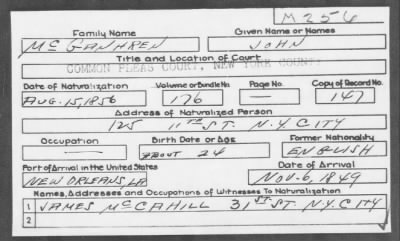 M256
Family Name Given Name or Names
McGANHREN JOHN
Title and Location of Court
COMMON PLEAS COURT, NEW YORK COUNTY
Date of Naturalization Volume or Bundle No. Page No. Copy of Record No.
AUG. 15, 1856 176 — 147
Address of Naturalized Person
125 11TH ST. N.Y. CITY
Occupation Birth Date or Age Former Nationality
— ABOUT 24 ENGLISH
Port of Arrival in the United States Date of Arrival
NEW ORLEANS LA NOV. 6, 1849
Names, Addresses and Occupations of Witnesses To Naturalization
1 JAMES McCAHILL 31ST ST. N.Y. CITY
2